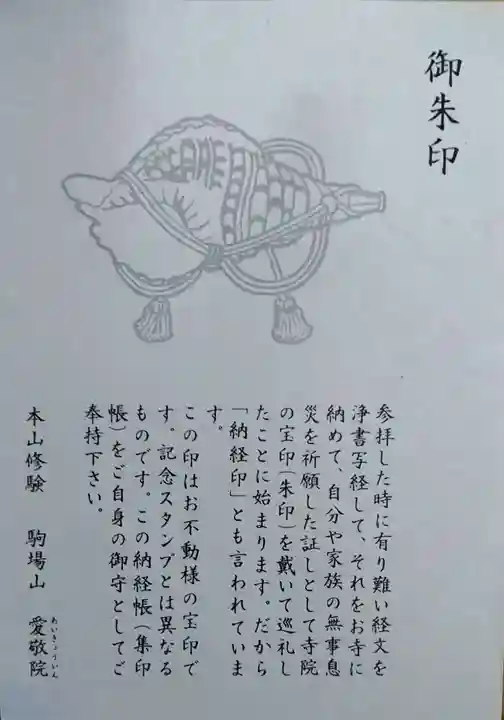 御朱印
参拝した時に有り難い経文を
浄書写経して、それをお寺に
納めて、自分や家族の無事息
災を祈願した証しとして寺院
の宝印(朱印)を戴いて巡礼し
たことに始まります。だから
「納経印」とも言われていま
す。
この印はお不動様の宝印で
す。記念スタンプとは異なる
ものです。この納経帳(集印
帳)をご自身の御守としてご
奉持下さい。
本山修験 駒場山 愛敬院
あいきょういん